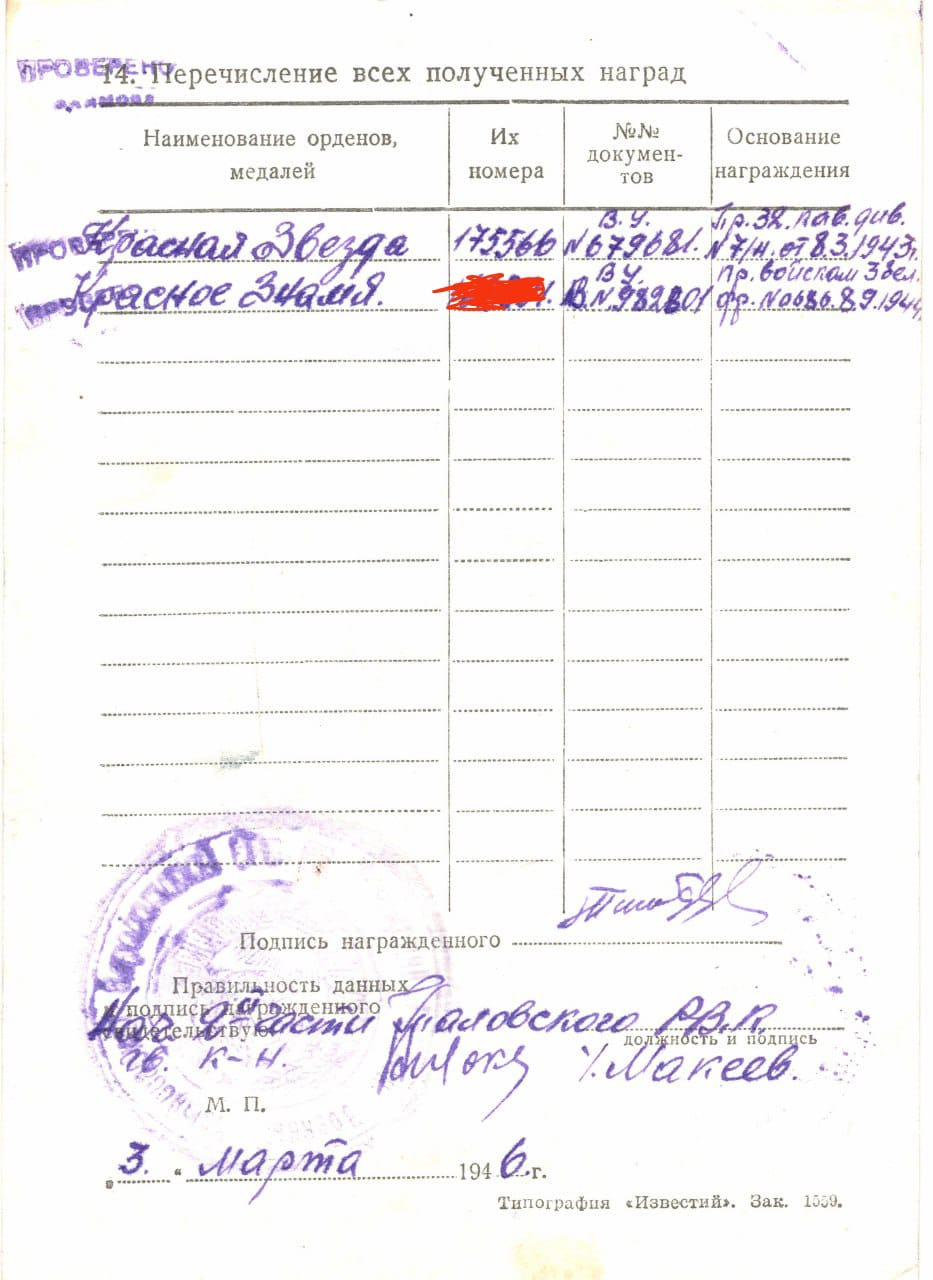 ПРОВЕРЕНО
14. Перечисление всех полученных наград
Наименование орденов, медалей
Их номера
№№ документов
Основание награждения
Красная Звезда 175566 В.У. №679681. Пр. 32 кав. див. №7/н. от 8.3.1943г.
Красное Знамя. В.У. В.№982801 Пр. войскам 3 бел. фр. №0686. 8.9.1944
Подпись награжденного
Правильность данных
и подпись награжденного
свидетельствую
Нач. 2 части Таловского РВК
должность и подпись
гв. к-н. /. Макеев.
М. П.
„ 3. “ марта 1946.г.
Типография «Известий». Зак. 1559.